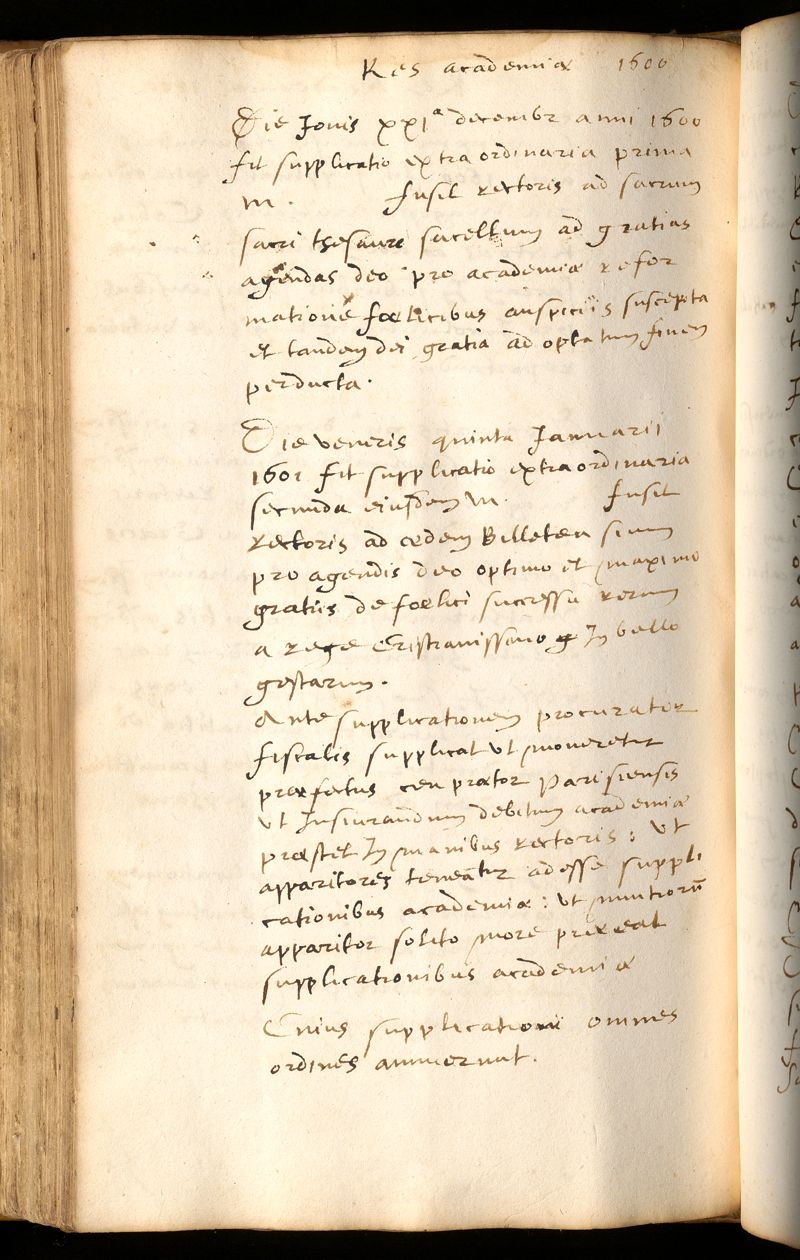 Res academiæ 1600
Die Jovis xxiª decembr anni 1600
fit supplicatio extraordinaria prima
m. fusil rectoris ad sacrum
sacri thesauri sacellum ad gratias
agendas deo pro academiæ refor
matione fœlicibus auspiciis suscepta
et tandem dei gratia ad optatum finem
perducta.
Die veneris quinta Januarii
1601 fit supplicatio extraordinaria
secunda eiusdem m. fusil
rectoris ad ædem Billetensium
pro agendis deo optimo et maximo
gratiis de fœlici successu rerum
a rege Cristianissimo In bello
gestarum.
Ante supplicationem procurator
fiscalis supplicat ut moneretur
præfectus ceu prætor parisiensis
ut Jusiurandum debitum academiæ
præstet In manibus rectoris: ut
apparitores teneātur adesse suppli
cationibus academiæ: ut nuntiorū
apparitor solito more præeat
supplicationibus academiæ
Cuius supplicationi omnes
ordines annuerunt.